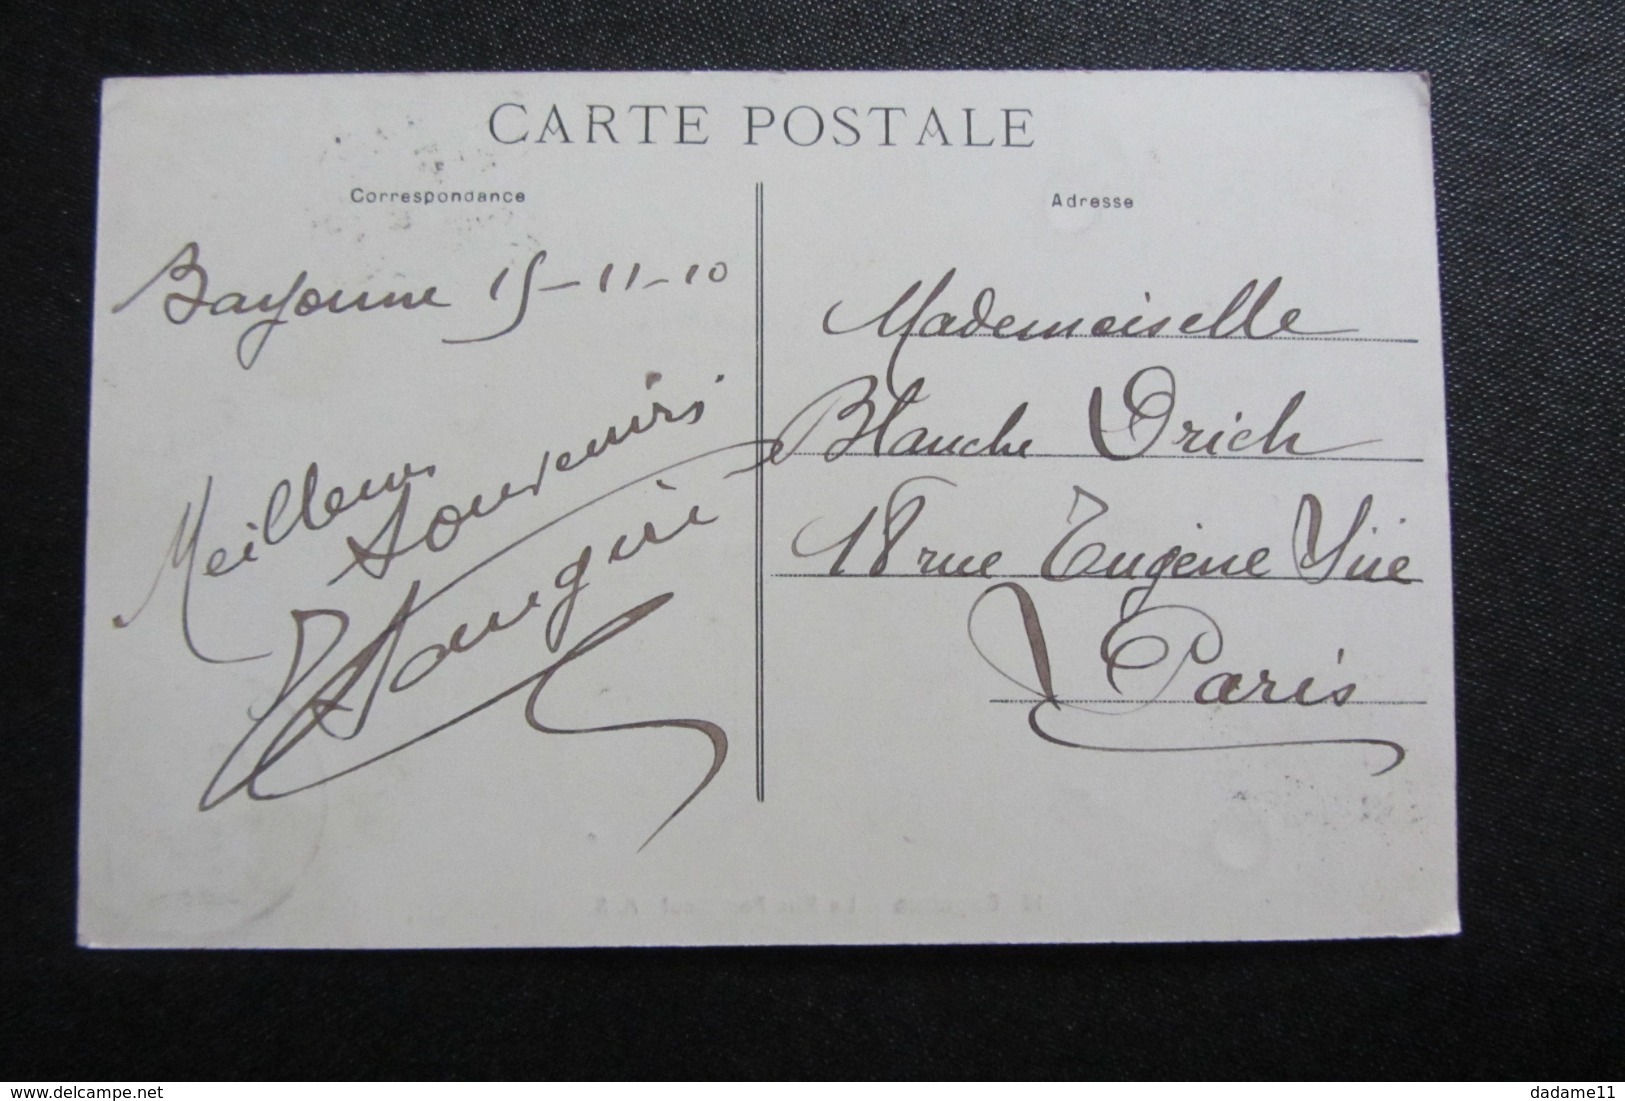 CARTE POSTALE
Correspondance
Bayonne 15-11-10
Meilleurs
Souvenirs
Adresse
Mademoiselle
Blanche Orich
18 rue Eugène Süe
Paris
delcampe.net
dadame11